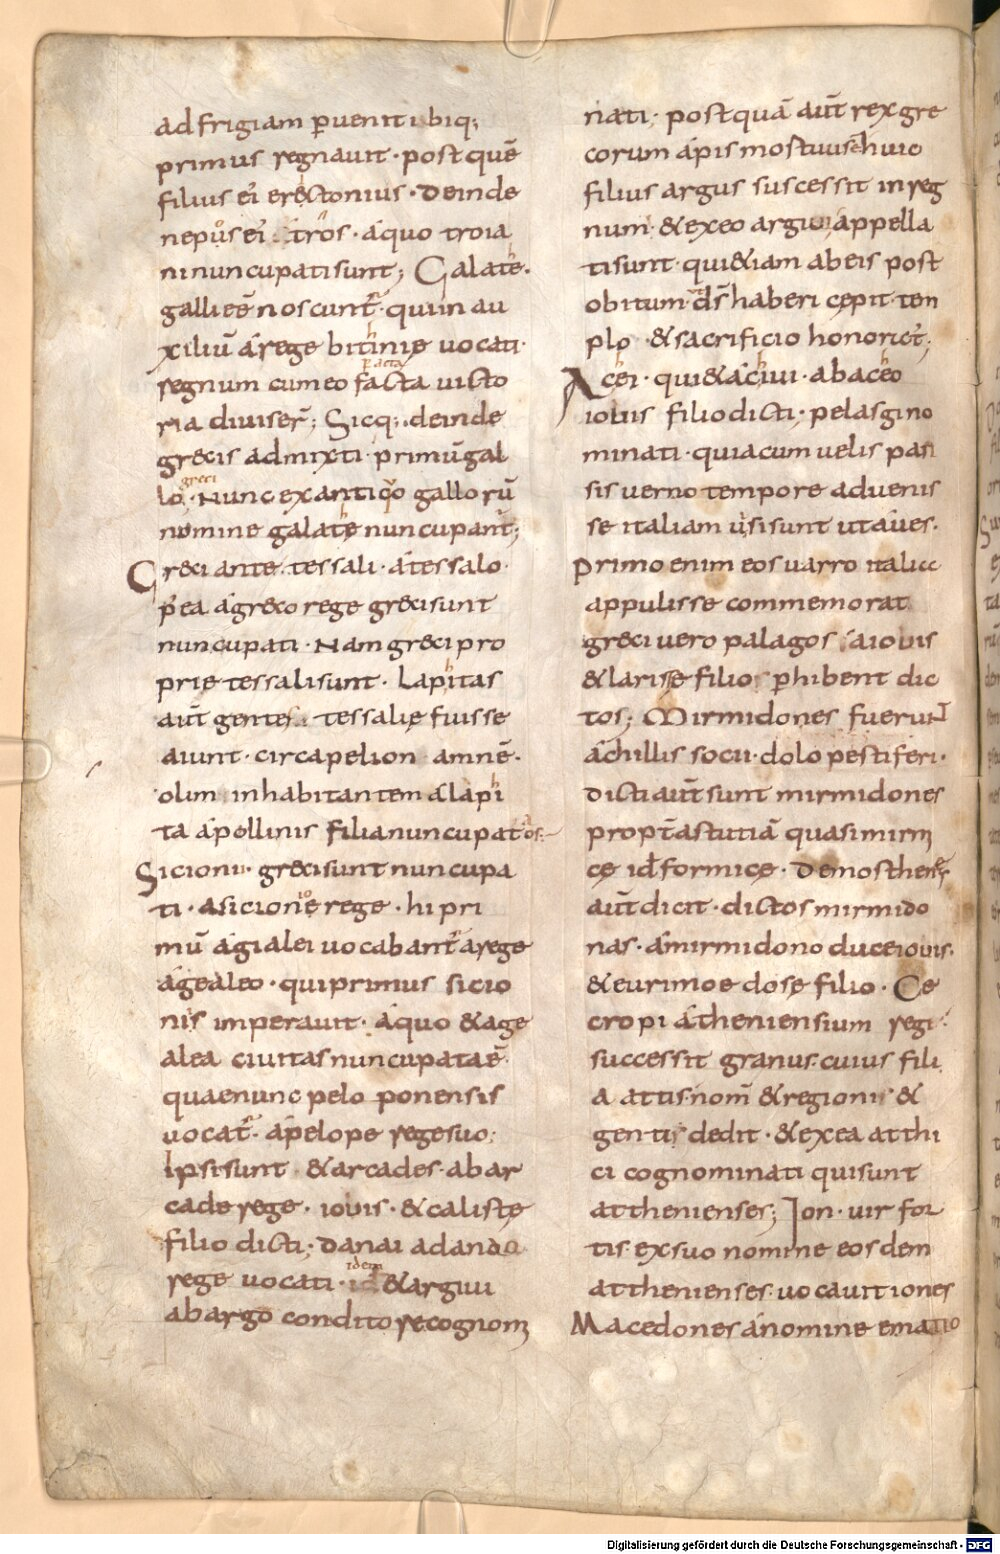 ad frigiam ꝑuenit ibiq;
primus regnauit · post quē
filius ei erectonius · Deinde
nepus ei tros · áquo troia
ni nuncupati sunt; Galate ·
galli eē noscunt᷑ · qui in au
xiliū á rege bitinię uocati ·
regnum cum eo facta uicto
peracta
ria diuiser̄; Sicq; deinde
grecis admixti · primū gal
greci
lo · Nunc ex antiquo gallorū
nomine galatę nuncupant᷑;
Greci ante tessali · á tessalo ·
p̄ea á greco rege greci sunt
nuncupati · Nam greci pro
prię tessali sunt · Lapitas
aūt gentes tessalię fuisse
aiunt · circa pelion amnē ·
olim inhabitantem á lapi
ta ápollinis filia nuncupatos
Sicionii · greci sunt nuncupa
ti · á sicione rege · hi pri
mū ágialei uocabant᷑ a rege
ágealeo · qui primus sicio
nis imperauit · áquo & age
alea ciuitas nuncupata ē ·
quae nunc peloponensis
uocat᷑ · ápelope rege suo;
Ipsi sunt & arcades · ab ar
cade rege · iouis · & calistę
filio dicti; Danai a danao
idem
rege uocati · id & argiui
ab argo conditore cognom̄
nati; postquā aūt rex gre
corum ápis mortuus ē huic
filius argus successit in reg
num · & ex eo argiui appella
ti sunt · qui & iam ab eis post
obitum ds̄ haberi cępit · ten
plo · & sacrificio honorat᷑;
Acei · qui & áciui · ab aceo
iouis filio dicti · pelasgi no
minati · quia cum uelis pan
sis uerno tempore aduenis
se italiam uisi sunt ut áues ·
Primo enim eos uarro italię
appulisse commemorat
greci uero palagos áiouis
& larissę filio ꝑhibent dic
tos; Mirmidones fuerunt
áchillis socii · dolo pestiferi ·
Dicti aūt sunt mirmidones
propt̄ astutiā quasi mirm
cę id formicę · Demosthenes
aūt dicit · dictos mirmido
nas · á mirmidono duce iouis ·
& eurimoe dosę filio · Ce
cropi átheniensium regi ·
successit granus · cuius fili
a attis · nom̄ & regioni &
genti dedit · & ex ea atthi
ci cognominati qui sunt
atthenienses; Ion · uir for
tis · ex suo nomine eosdem
atthenienses · uocauit iones
Macedones á nomine ematio
Digitalisierung gefördert durch die Deutsche Forschungsgemeinschaft - DFG